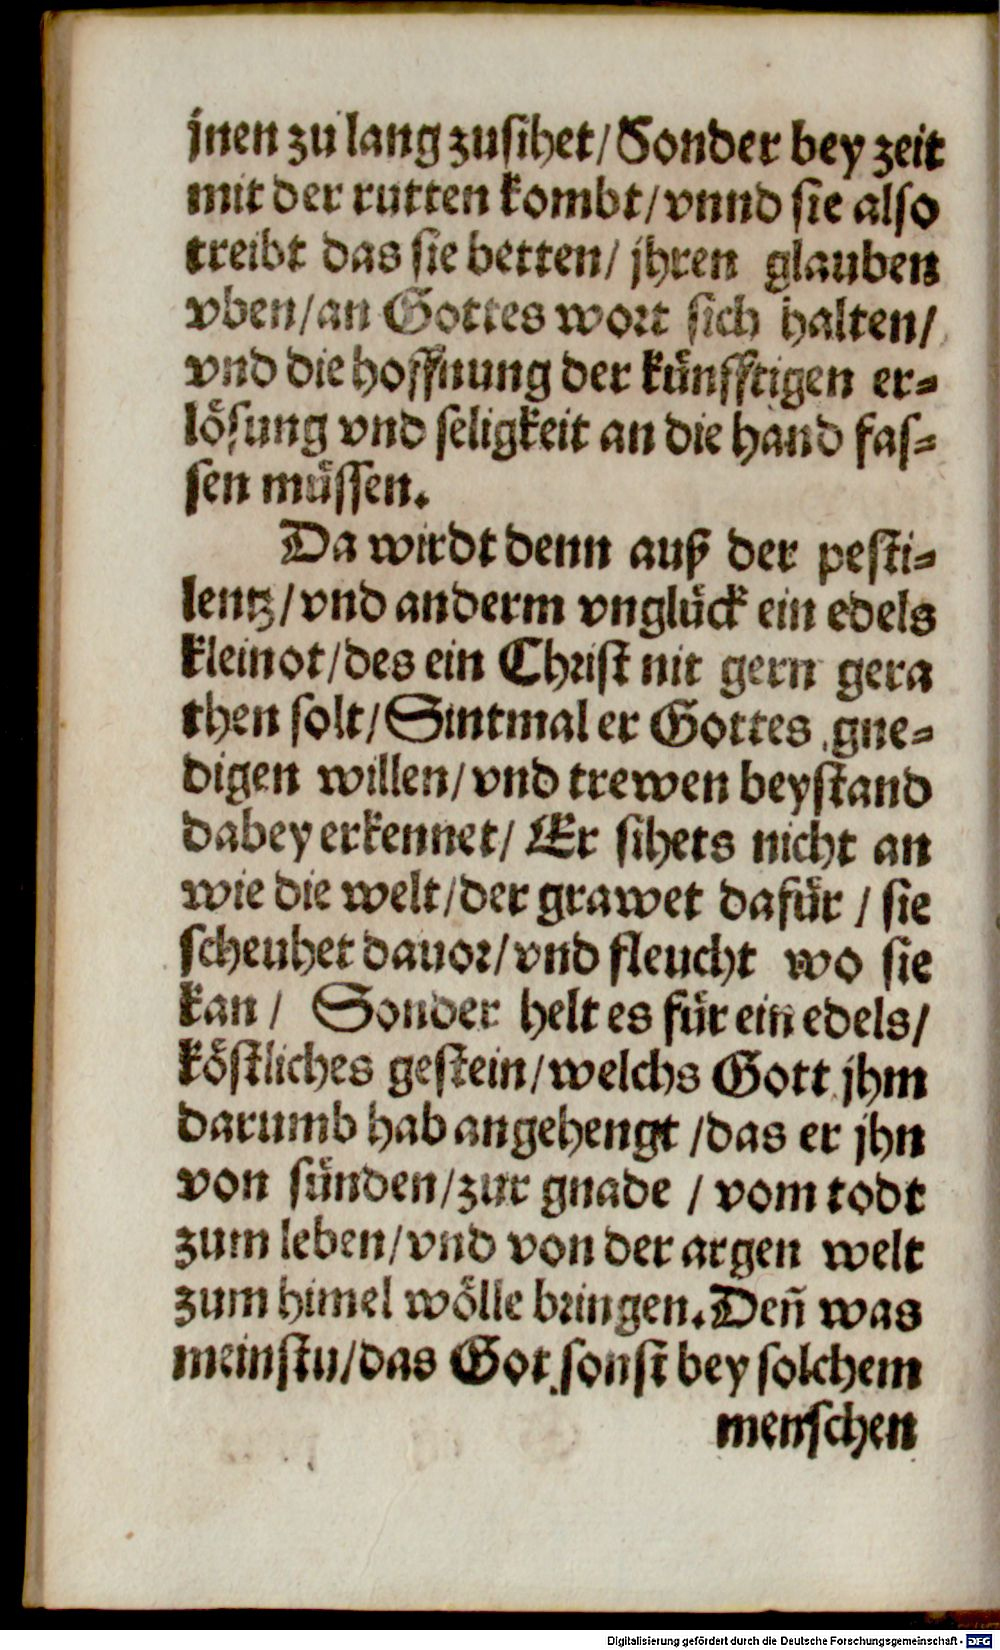 jnen zu lang zusihet/Sonder bey zeit
mit der rutten kombt/vnnd sie also
treibt das sie betten/ jhren glauben
vben/an Gottes wort sich halten/
vnd die hoffnung der künfftigen er-
lösung vnd seligkeit an die hand fas-
sen müssen.
Da wirdt denn auß der pesti-
lentz/vnd anderm vnglück ein edels
kleinot/des ein Christ nit gern gera
then solt/Sintmal er Gottes gne-
digen willen/vnd trewen beystand
dabey erkennet/ Er sihets nicht an
wie die welt/der grawet dafür / sie
scheuhet dauor/vnd fleucht wo sie
kan / Sonder helt es für ein edels/
köstliches gestein/welchs Gott jhm
darumb hab angehengt /das er jhn
von sünden/zur gnade / vom todt
zum leben/vnd von der argen welt
zum himel wölle bringen.Deñ was
meinstu/das Got sonst bey solchem
menschen
Digitalisierung gefördert durch die Deutsche Forschungsgemeinschaft - DFG